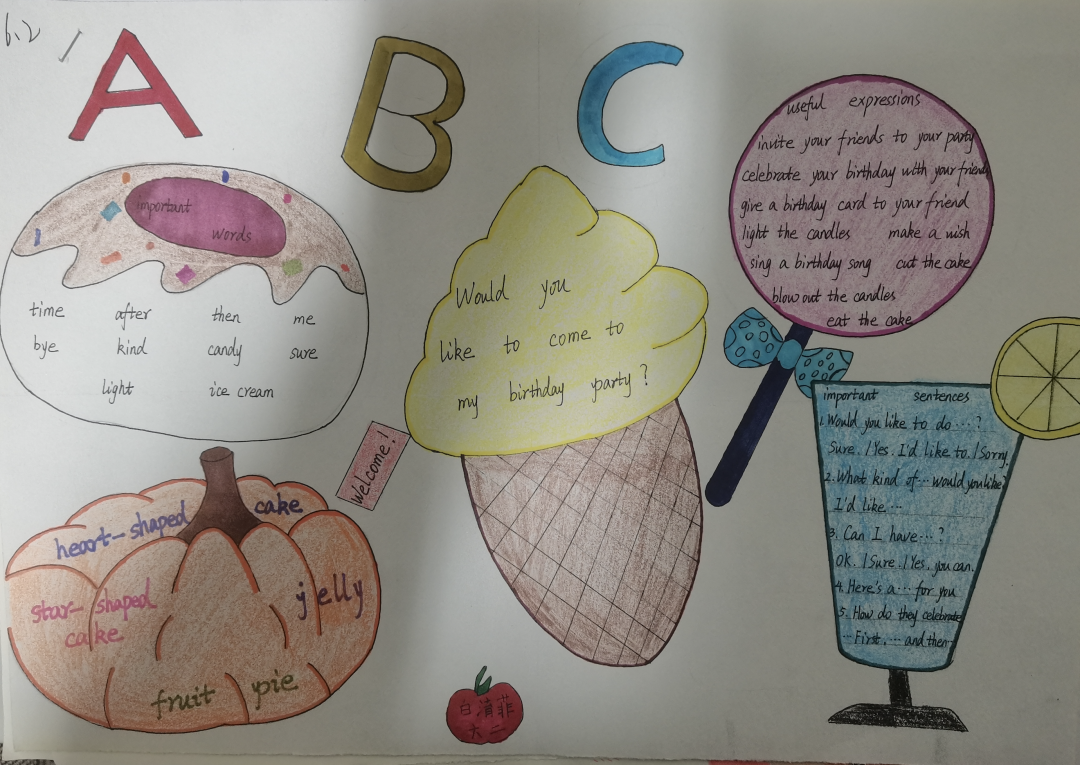 6.2
A B C
important
words
time after then me
bye kind candy sure
light ice cream
Would you
like to come to
my birthday party?
useful expressions
invite your friends to your party
celebrate your birthday with your friends
give a birthday card to your friend
light the candles make a wish
sing a birthday song cut the cake
blow out the candles
eat the cake
Welcome!
heart-shaped cake
star-shaped
cake
jelly
fruit pie
important sentences
1. Would you like to do ...?
Sure. / Yes. I'd like to. / Sorry.
2. What kind of ... would you like?
I'd like ...
3. Can I have ...?
OK. / Sure. / Yes, you can.
4. Here's a ... for you
5. How do they celebrate
... First, ... and then
白清菲
六二